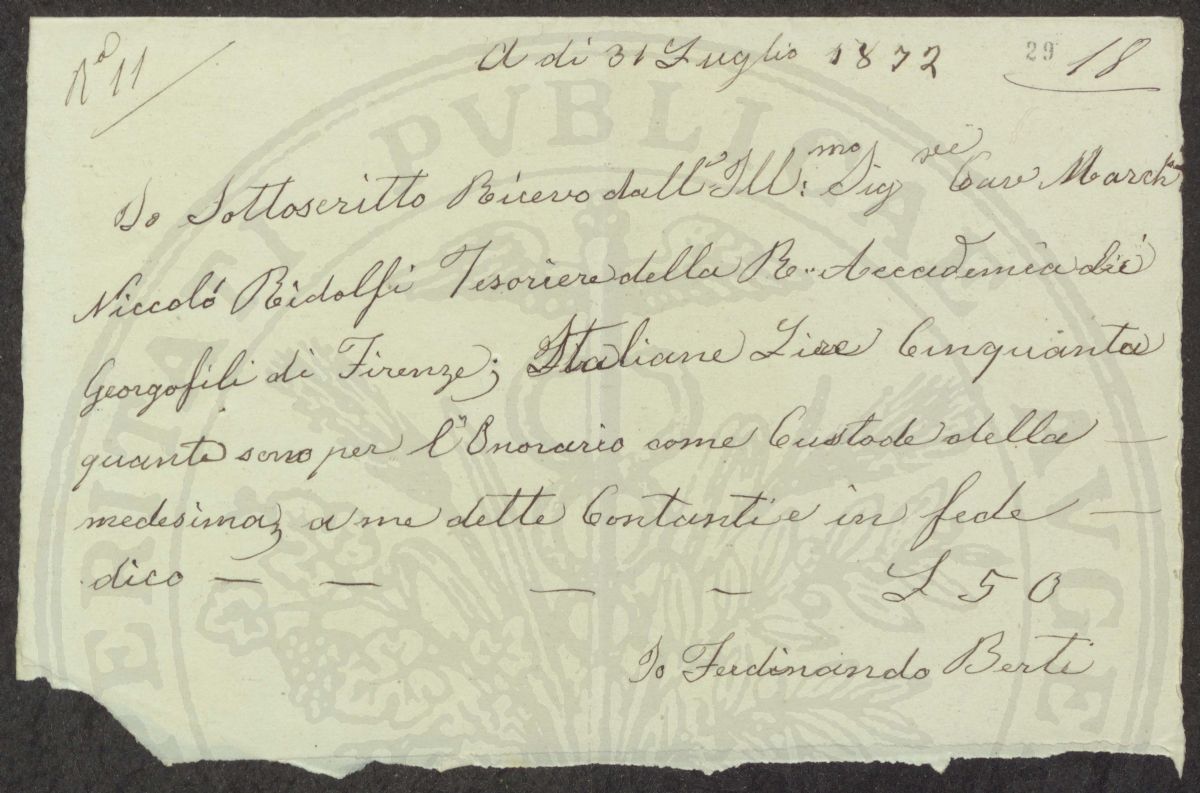 R° 11
A dì 31 Luglio 1872
29 18
Io Sottoscritto Ricevo dall' Ill:mo Sig.re Cav March.
Niccoló Ridolfi Tesoriere della R. Accademia dei
Georgofili di Firenze; Italiane Lire Cinquanta
quante sono per l'Onorario come Custode della —
medesima; a me dette Contanti e in fede —
dico — — — — L 50
Io Ferdinando Berti
PVBLICAE